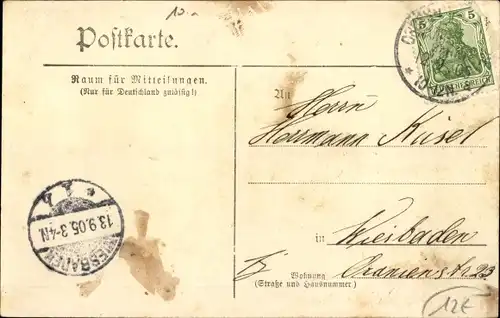 Postkarte.
5 5
DEUTSCHES REICH
Raum für Mitteilungen.
(Nur für Deutschland zulässig!)
An
Herrn
Herrmann Kusel
WIESBADEN
13.9.05.3-4N.
in Wiesbaden
Wohnung
(Straße und Hausnummer)
Oranienstr 23
12€